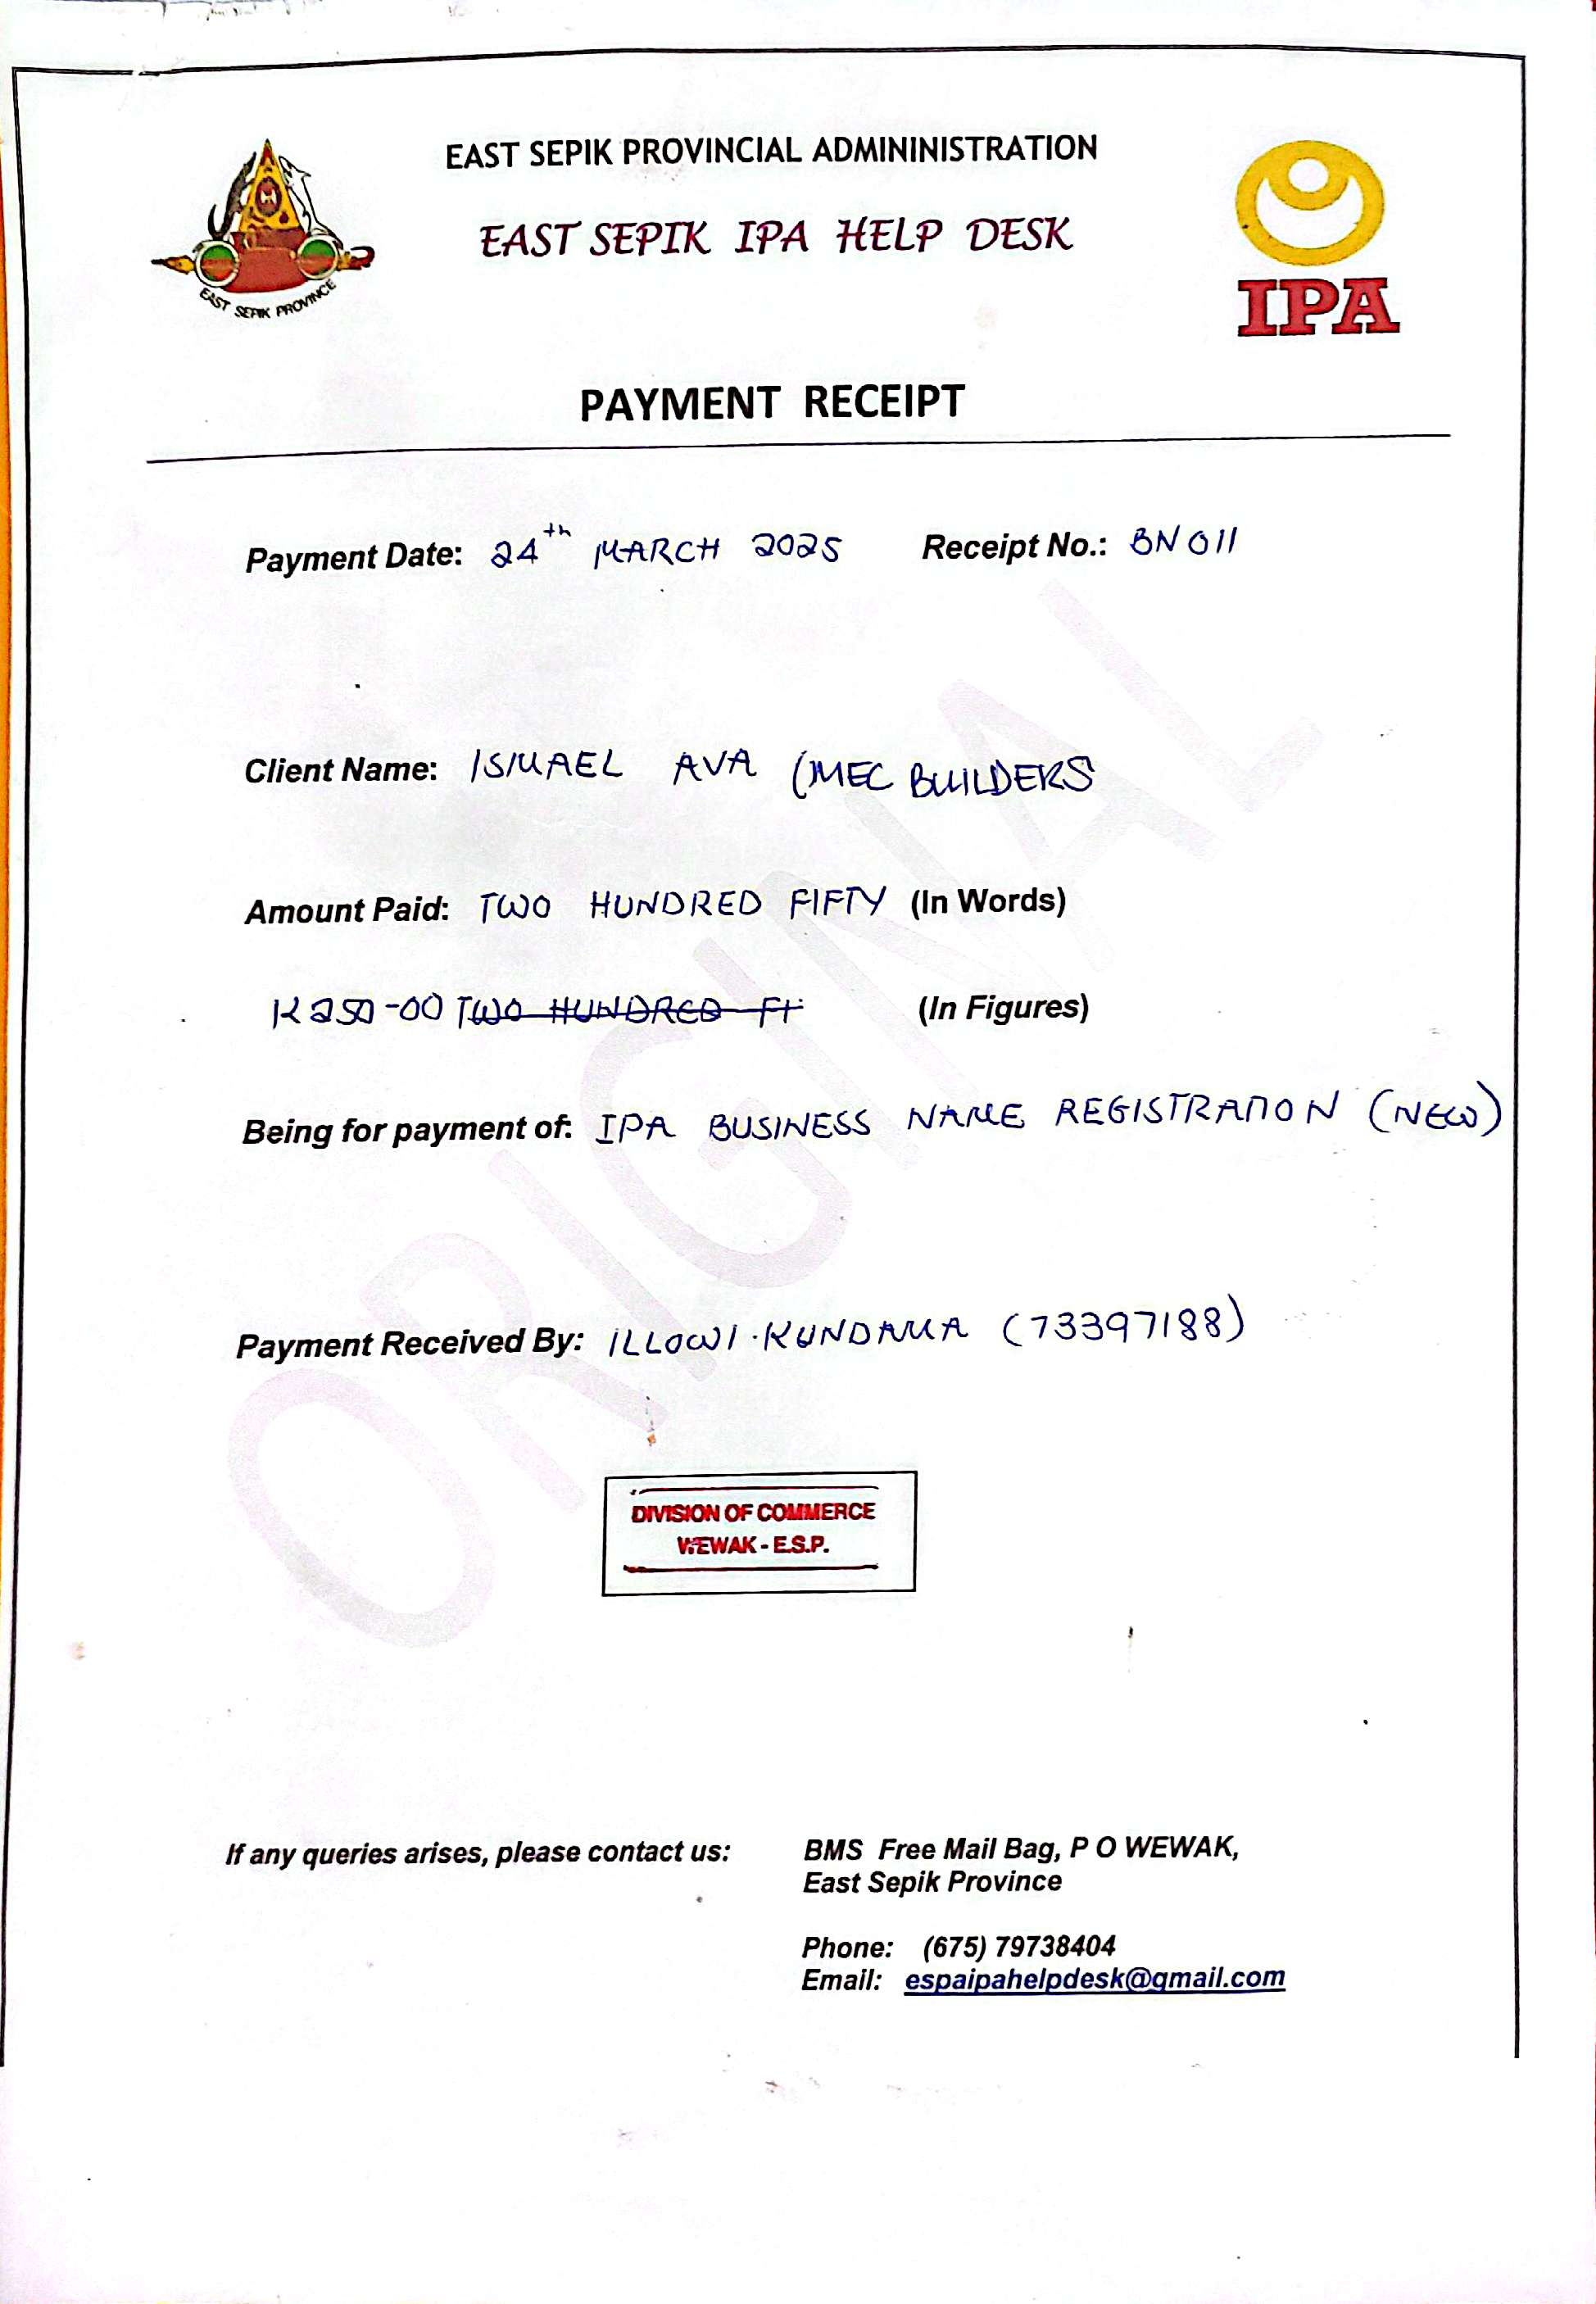 EAST SEPIK PROVINCIAL ADMININISTRATION
EAST SEPIK IPA HELP DESK
EAST SEPIK PROVINCE
IPA
PAYMENT RECEIPT
Payment Date: 24th MARCH 2025 Receipt No.: BN011
Client Name: ISMAEL AVA (MEC BUILDERS
Amount Paid: TWO HUNDRED FIFTY (In Words)
K250-00 TWO HUNDRED FI (In Figures)
Being for payment of: IPA BUSINESS NAME REGISTRATION (NEW)
Payment Received By: ILLOWI.KUNDAMA (73397188)
ORIGINAL
DIVISION OF COMMERCE
WEWAK - E.S.P.
If any queries arises, please contact us: BMS Free Mail Bag, P O WEWAK,
East Sepik Province
Phone: (675) 79738404
Email: espaipahelpdesk@gmail.com